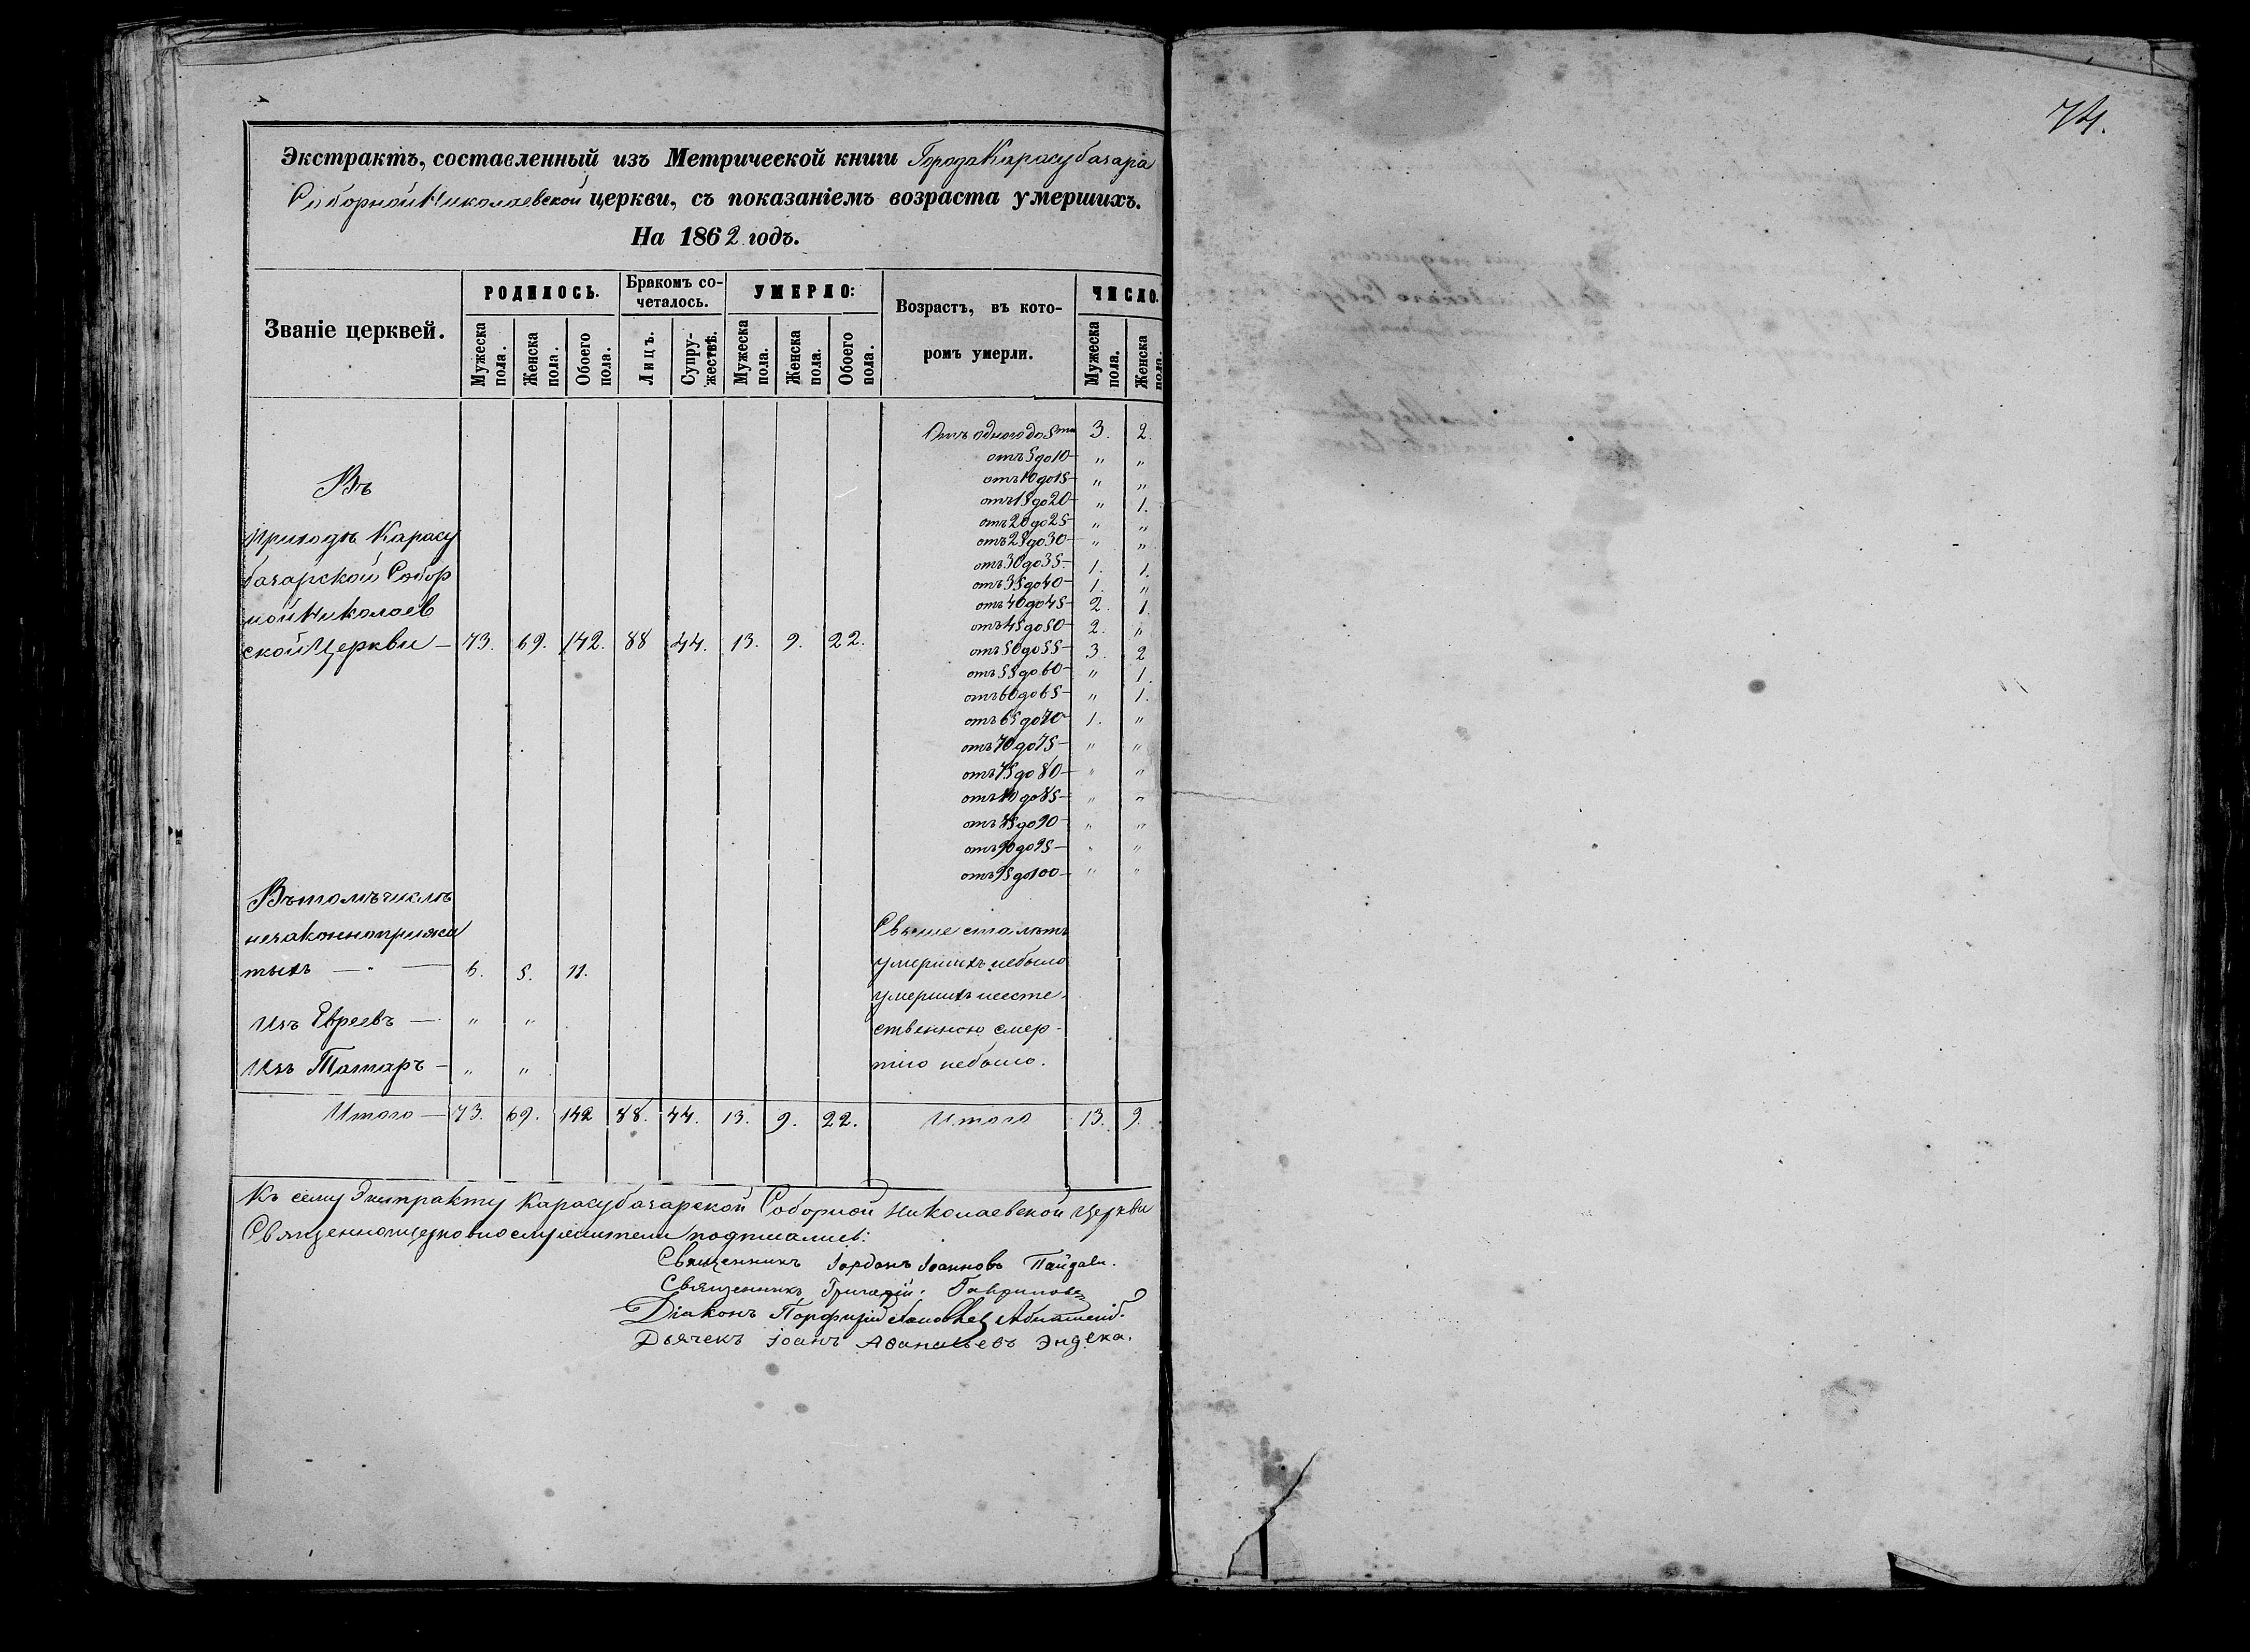 74.
Экстрактъ, составленный изъ Метрической книги Города Карасубазара
Соборной Николаевской церкви, съ показаніемъ возраста умершихъ.
На 1862 годъ.
Званіе церквей.
РОДИЛОСЬ.
Мужеска пола.
Женска пола.
Обоего пола.
Бракомъ со-
четалось.
Лицъ.
Супру-
жествъ.
УМЕРЛО:
Мужеска пола.
Женска пола.
Обоего пола.
Возрастъ, въ кото-
ромъ умерли.
ЧИСЛО.
Мужеска пола.
Женска пола.
Отъ одного до 5ти 3. 2.
отъ 5 до 10 — " "
отъ 10 до 15 — " "
отъ 15 до 20 — " 1.
отъ 20 до 25 — " "
отъ 25 до 30 — " "
отъ 30 до 35 — 1. 1.
отъ 35 до 40 — 1. "
отъ 40 до 45 — 2. 1.
отъ 45 до 50 — 2. "
отъ 50 до 55 — 3. 2
отъ 55 до 60 — " 1.
отъ 60 до 65 — " 1.
отъ 65 до 70 — 1. "
отъ 70 до 75 — " "
отъ 75 до 80 — " "
отъ 80 до 85 — " "
отъ 85 до 90 — " "
отъ 90 до 95 — " "
отъ 95 до 100 — " "
Въ
приходѣ Карасу
базарской Собор
ной Николаев
ской Церкви — 73. 69. 142. 88 44. 13. 9. 22.
Въ томъ числѣ
незаконноприжи
тыхъ — 6. 5. 11.
Изъ Евреевъ — " "
Изъ Татаръ — " "
Свыше ста лѣтъ
умершихъ небыло
умершихъ неесте-
ственною смер-
тію небыло.
Итого — 73. 69. 142 88. 44. 13. 9. 22. Итого 13. 9.
Къ сему Экстракту Карасубазарской Соборной Николаевской Церкви
Священноцерковнослужители подписались:
Священникъ Іорданъ Іоанновъ
Священникъ Григорій
Діаконъ Порфирій
Дьячекъ Іоанъ Аѳанасьевъ Эндека.